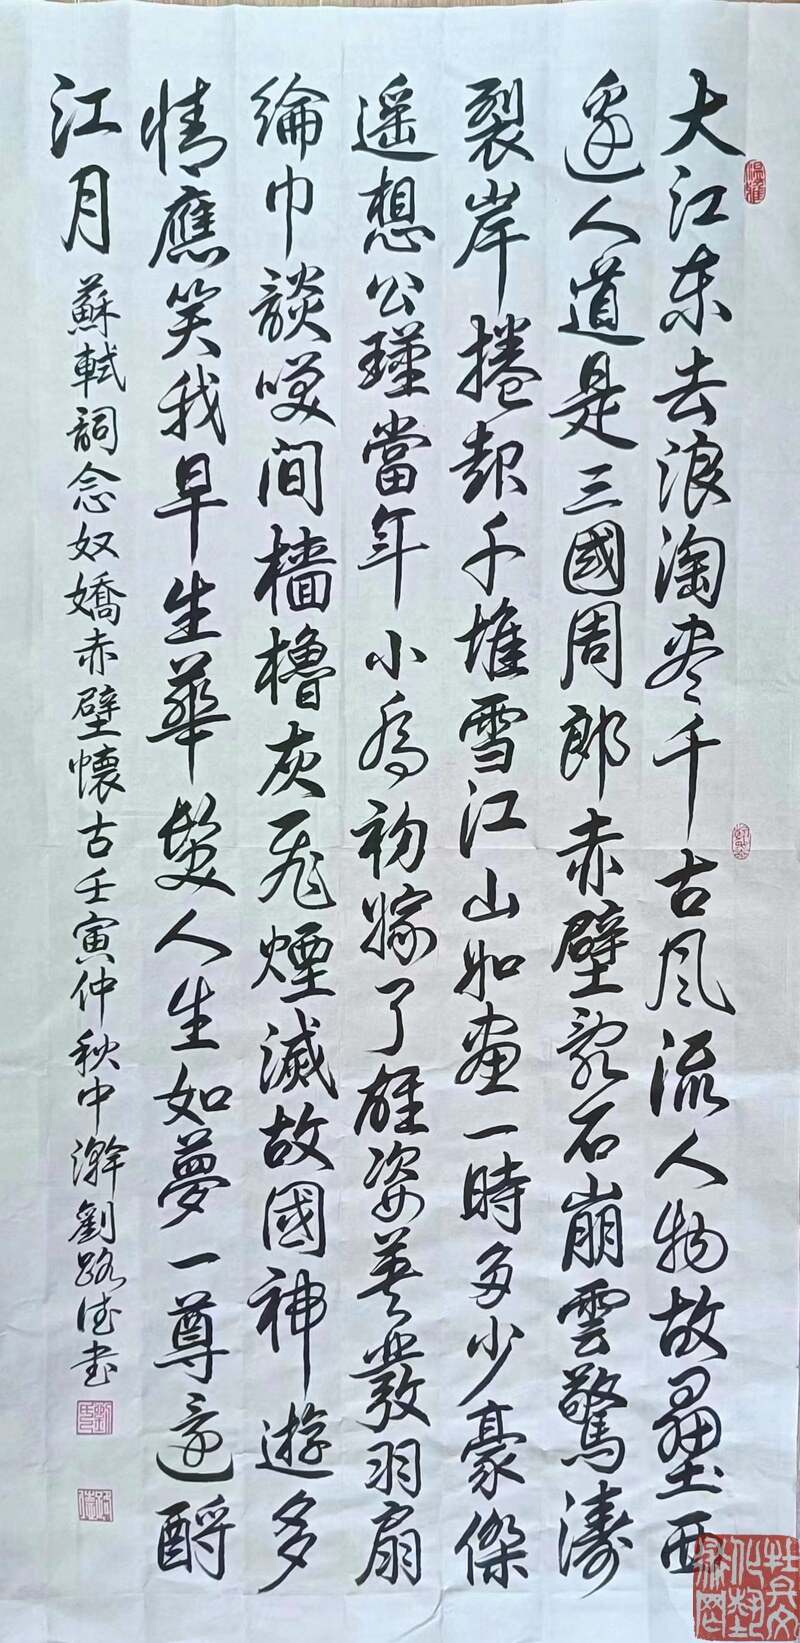 大江东去浪淘尽千古风流人物故壘西
邊人道是三國周郎赤壁亂石崩雲驚濤
裂岸捲起千堆雪江山如畫一時多少豪傑
遥想公瑾當年小喬初嫁了雄姿英發羽扇
綸巾談笑间檣櫓灰飛煙滅故國神遊多
情應笑我早生華髮人生如夢一尊還酹
江月
蘇軾詞念奴嬌赤壁懷古壬寅仲秋中澣劉路德书